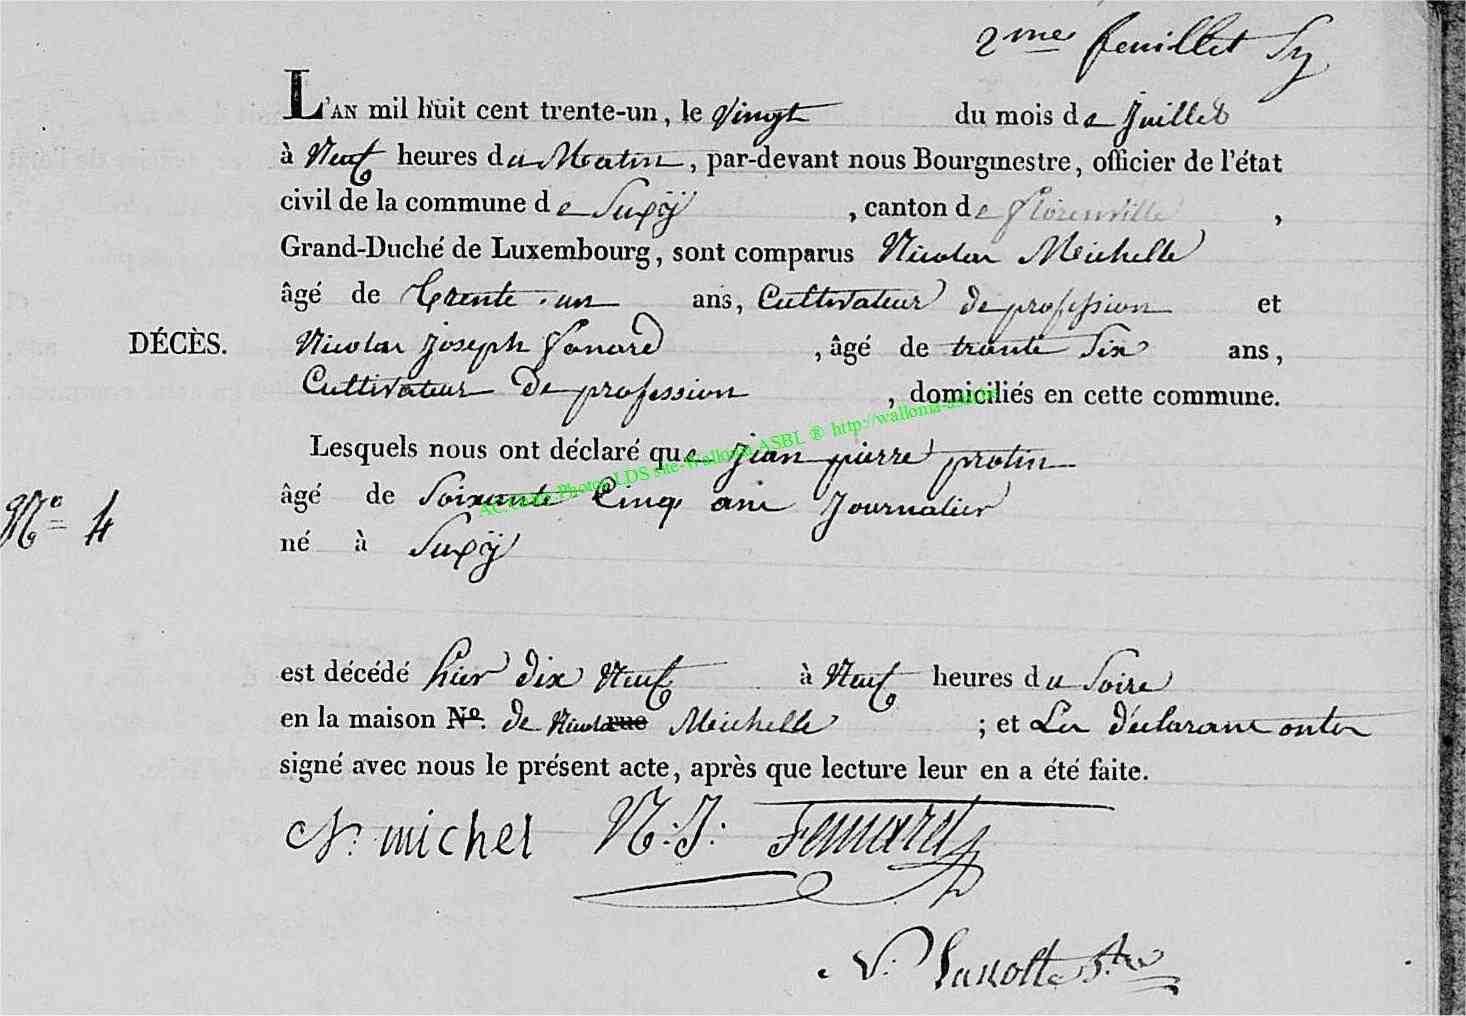 2me feuillet Sy
L'AN mil huit cent trente-un, le Vingt du mois de Juillet
à Neuf heures du Matin, par-devant nous Bourgmestre, officier de l'état
civil de la commune de Suxÿ, canton de florenville,
Grand-Duché de Luxembourg, sont comparus Nicolas Meichelle
âgé de trente-un ans, Cultivateur de profession et
DÉCÈS.
Nicolas Joseph fonard, âgé de trante Six ans,
Cultivateur De profession, domiciliés en cette commune.
Lesquels nous ont déclaré que Jian pierre protin
âgé de Soixante Cinq ans Journalier
Nº 4
né à Suxÿ
est décédé hier dix Neuf à Neuf heures du Soire
en la maison Nº. de Nicolas rue Meichelle ; et Les déclarans ontes
signé avec nous le présent acte, après que lecture leur en a été faite.
N. michel N. J. Femaret
N. Lanotte
ACTES: Photos LDS site-Wallonia ASBL ® http://wallonia-asbl.be